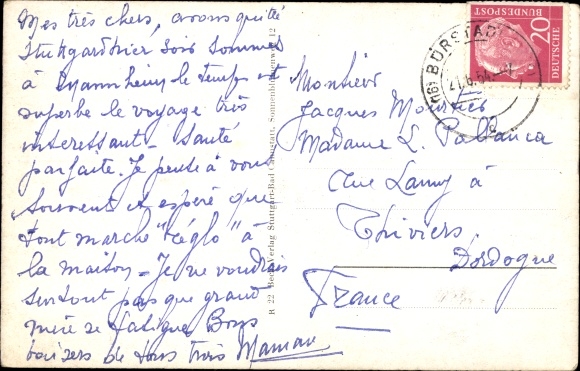 Mes très chers, avons quitté
Stuttgard hier soir sommes
à Mannheim le temps est
superbe le voyage très
interessant - Santé
parfaite. Je pense à vous
souvent et espère que
tout marche "réglo" à
la maison - Je ne voudrais
surtout pas que grand
mère se fatigue Bons
baisers de tous trois Maman
R 22 Beck-Verlag Stuttgart-Bad Cannstatt, Sonnenblumenweg 12
(16) BÜRSTADT
21.6.54
20
DEUTSCHE
BUNDESPOST
Monsieur
Jacques
Madame L.
rue Lamy à
Thiviers
Dordogne
France